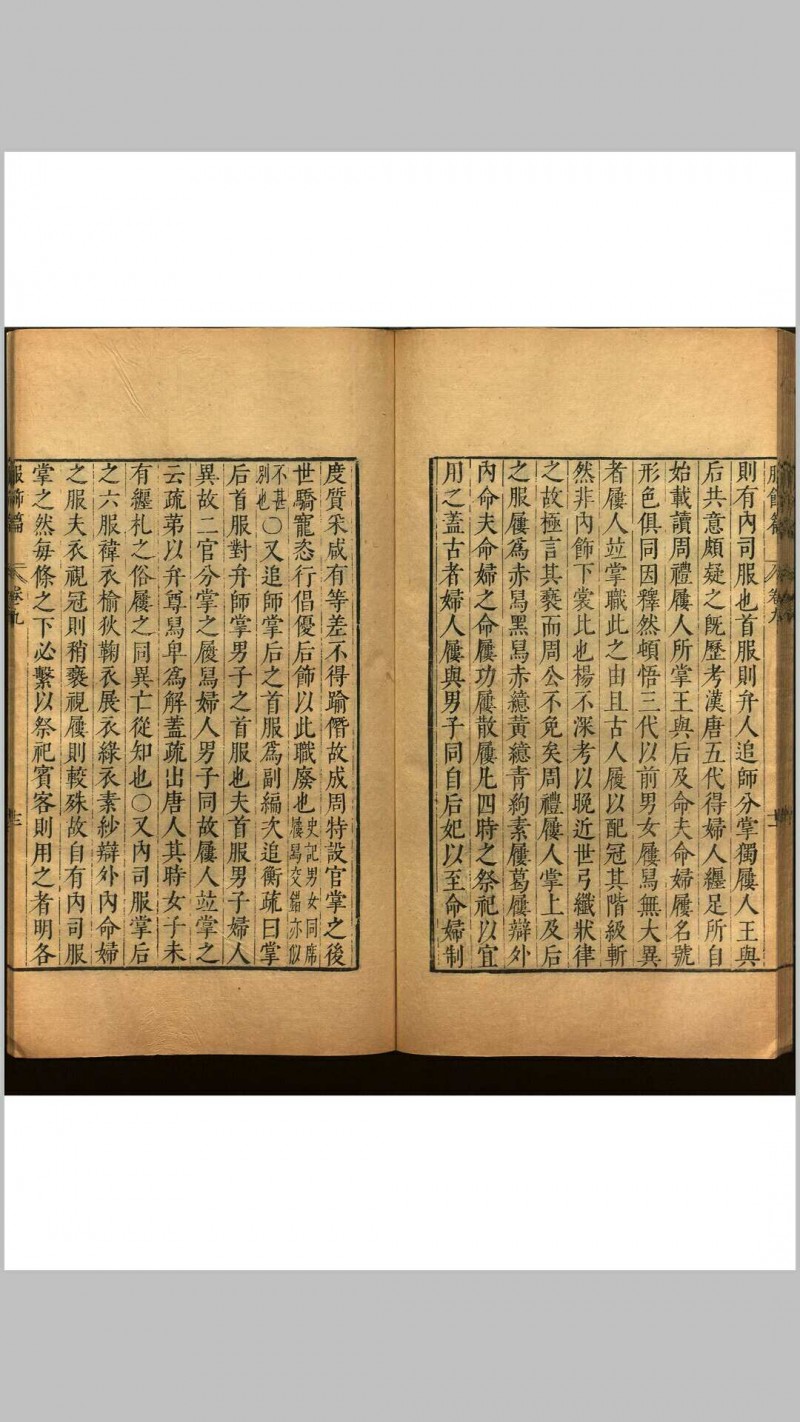 服飾篇 卷九 十二
則有內司服也首服則弁人追師分掌獨屨人王與
后共意頗疑之旣歷考漢唐五代得婦人纏足所自
始載讀周禮屨人所掌王與后及命夫命婦屨名號
形色俱同因釋然頓悟三代以前男女屨舃無大異
者屨人竝掌職此之由且古人履以配冠其階級斬
然非內飾下裳比也楊不深考以晚近世弓纖狀律
之故極言其褻而周公不免矣周禮屨人掌上及后
之服屨爲赤舃黑舃赤繶黃繶青絇素屨葛屨辯外
內命夫命婦之命屨功屨散屨凡四時之祭祀以宜
用之蓋古者婦人屨與男子同自后妃以至命婦制
度質采咸有等差不得踰僭故成周特設官掌之後
世驕寵恣行倡優后飾以此職廢也史記男女同席屨舃交錯亦似
不甚別也〇又追師掌后之首服爲副編次追衡疏曰掌
后首服對弁師掌男子之首服也夫首服男子婦人
異故二官分掌之屨舃婦人男子同故屨人竝掌之
云疏第以弁尊舃卑爲解蓋疏出唐人其時女子未
有纏札之俗屨之同異亡從知也〇又內司服掌后
之六服褘衣榆狄鞠衣展衣緣衣素紗辯外內命婦
之服夫衣視冠則稍褻視屨則較殊故自有內司服
掌之然每條之下必繫以祭祀賓客則用之者明各
服飾篇 卷九 十三